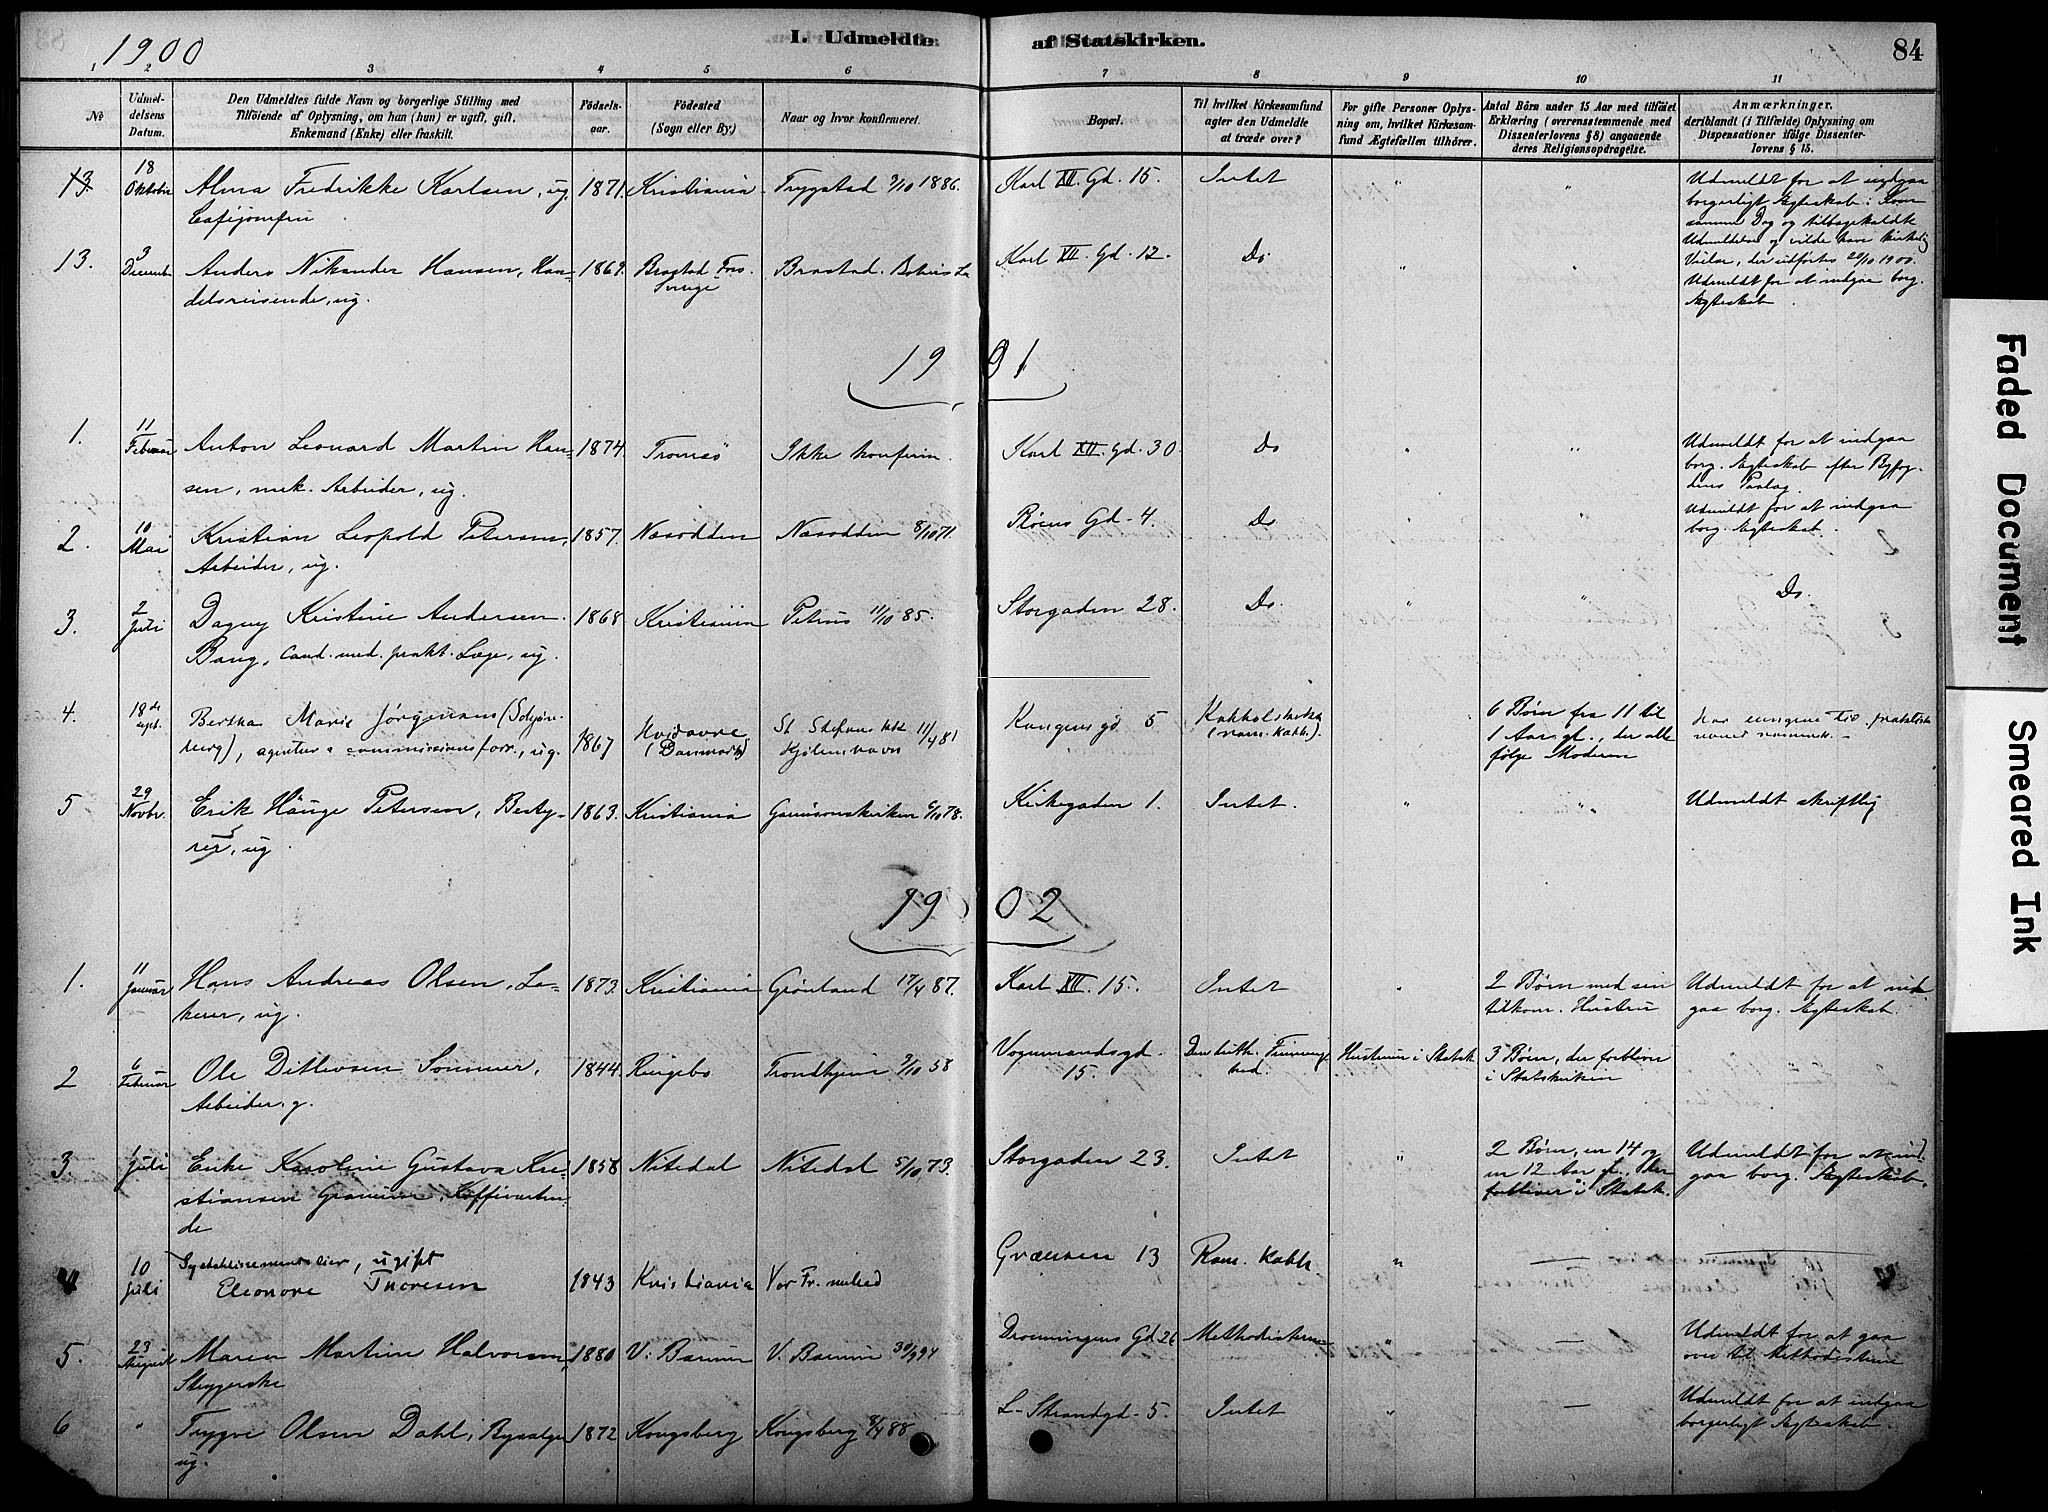 1900
I. Udmeldte af Statskirken.
84
1 2 3 4 5 6 7 8 9 10 11
No
Udmel-
delsens
Datum.
Den Udmeldtes fulde Navn og borgerlige Stilling med
Tilföiende af Oplysning, om han (hun) er ugift, gift,
Enkemand (Enke) eller fraskilt.
Födsels-
aar.
Födested
(Sogn eller By)
Naar og hvor konfirmeret.
Bopæl.
Til hvilket Kirkesamfund
agter den Udmeldte
at træde over?
For gifte Personer Oplys-
ning om, hvilket Kirkesam-
fund Ægtefællen tilhörer.
Antal Börn under 15 Aar med tilföiet
Erklæring (overensstemmende med
Dissenterlovens § 8) angaaende
deres Religionsopdragelse.
Anmærkninger,
deriblandt (i Tilfælde) Oplysning om
Dispensationer ifölge Dissenter-
lovens § 15.
13. 18 Oktober Alma Fredrikke Karlsen, ug. 1871. Kristiania Trygstad 3/10 1886. Karl XII. Gd. 15. Intet " "
Udmeldt for at indgaa
borgerligt Ægteskab;
samme Dag og tilbagekaldte
Udmeldelsen og vilde have kirkelig
Vielse, der udførtes 20/10 1900.
13. 3 Decemb. Anders Nikander Hansen, Han-
delsreisende, ug. 1869. Brastad
Sverige Brastad. Karl XII. Gd. 12. Do " "
Udmeldt for at indgaa borg.
Ægteskab.
1901
1. 11 Februar Anton Leonard Martin Han-
sen, mek. Arbeider, ug. 1874. Tromsö Ikke konfirm. Karl XII. Gd. 30 Do " "
Udmeldt for at indgaa
borg. Ægteskab efter Byfog-
dens Paalæg.
2. 10 Mai Kristian Leopold Petersen,
Arbeider, ug. 1857. Næsodden Næsodden 8/10 71. Gd. 4. Do " "
Udmeldt for at indgaa
borg. Ægteskab.
3. 2 Juli Dagny Kristine Andersen
Bang, Cand. med. prakt. Læge, ug. 1868 Kristiania Petrus 11/10 85. Storgaden 28. Do " " Do.
4. 18de sept. Bertha Marie Jörgensen
agentur & commissionsforr., ug. 1867 Hvidovre
(Danmark) St Stefans
Kjöbenhavn 11/4 81 Kongens gd 5
(rom. kath.).
6 Børn fra 11 til
1 Aar gl., der alle
følge Moderen
5 29 Novbr. Erik Hauge Petersen, Besty-
rer, ug. 1863. Kristiania Garnisonskirken 6/10 78. Kirkegaden 1. Intet. " "
Udmeldt skriftlig
1902
1. 11 Januar Hans Andreas Olsen, La-
kerer, ug. 1873. Kristiania Grönland 17/4 87. Karl XII. 15. Intet "
2 Børn med sin
tilkom. Hustru
Udmeldt for at ind-
gaa borg. Ægteskab.
2 6 Februar Ole Ditlevsen Sommer,
Arbeider, g. 1844. Ringebo Trondhjem 3/10 58 Vognmandsgd.
15. Den luth. Frimenig-
hed. Hustruen i Statsk.
3 Børn, der forbliver
i Statskirken
3. 1 Juli Enke Karoline Gustava Kri-
stiansen Kaffivarten-
de 1858 Nitedal Nitedal 5/10 73. Storgaden 23. Intet "
2 Børn, en 14 og
en 12 Aar gl., der
forbliver i Statsk.
Udmeldt for at ind-
gaa borg. Ægteskab.
4 10 Juli Syetablissementseier, ugift
Eleonore Thoresen 1843 Kristiania Vor Fr. Grændsen 13 Rom. Kath " —
5. 23 August Maren Martine Halvorsen,
Strygerske 1880 V. Bærum V. Bærum 30/9 94 Dronningens Gd 26 Methodisterne " —
Udmeldt for at gaa
over til Methodisterne
6 " Trygve Olsen Dahl, Bysælger
ug. 1872 Kongsberg Kongsberg 8/4 88 L. Strandgd. 5. Intet " —
Udmeldt for at indgaa
borgerligt Ægteskab.
Faded Document
Smeared Ink